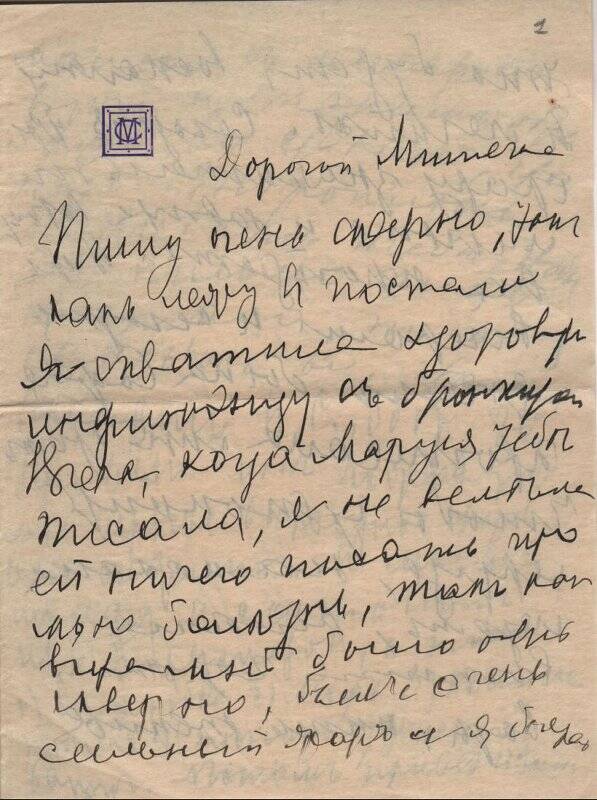 1
МС
Дорогой Мишечка
Пишу очень скверно, такъ
какъ лежу въ постели
Я схватила здоровую
инфлюэнцу съ бронхитомъ
Вчера, когда Маруся тебѣ
писала, я не велѣла
ей ничего писать про
мою болѣзнь, такъ какъ
было очень
скверно, былъ очень
сильный жаръ и я